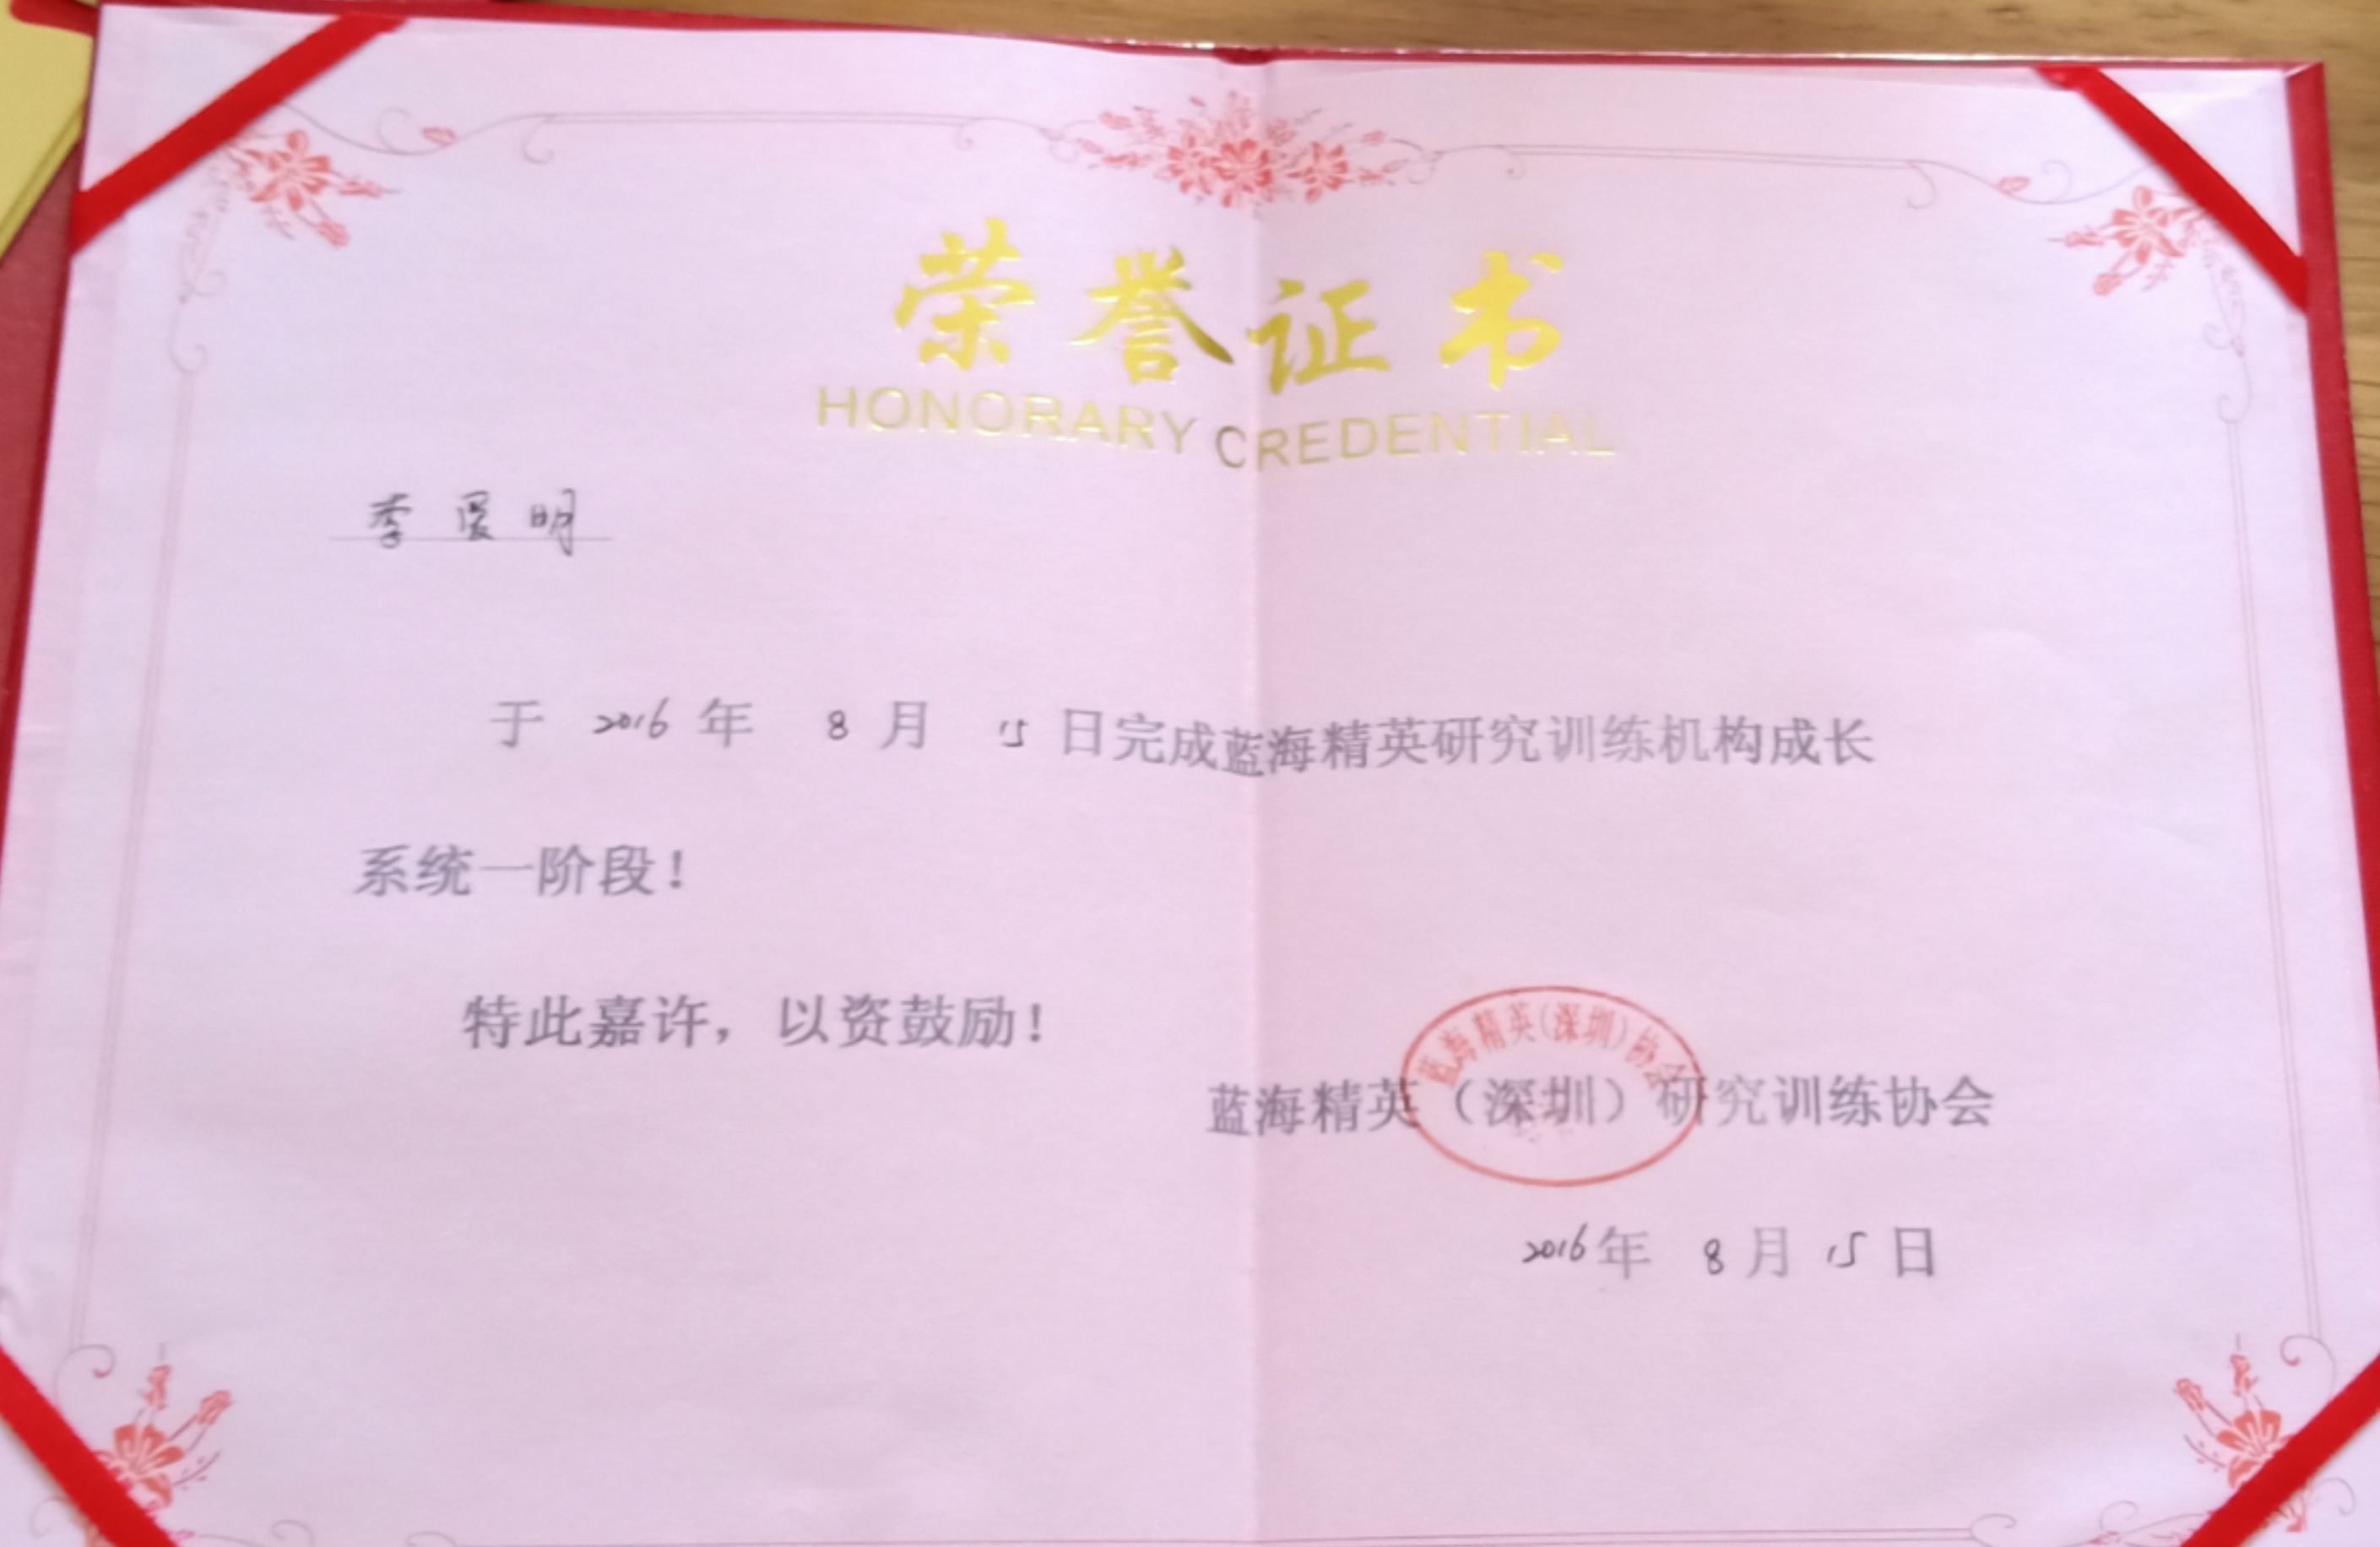 荣誉证书
HONORARY CREDENTIAL
李爱明
于 2016 年 8 月 15 日完成蓝海精英研究训练机构成长
系统一阶段！
特此嘉许，以资鼓励！
蓝海精英(深圳)协会
蓝海精英（深圳）研究训练协会
2016年 8月 15日